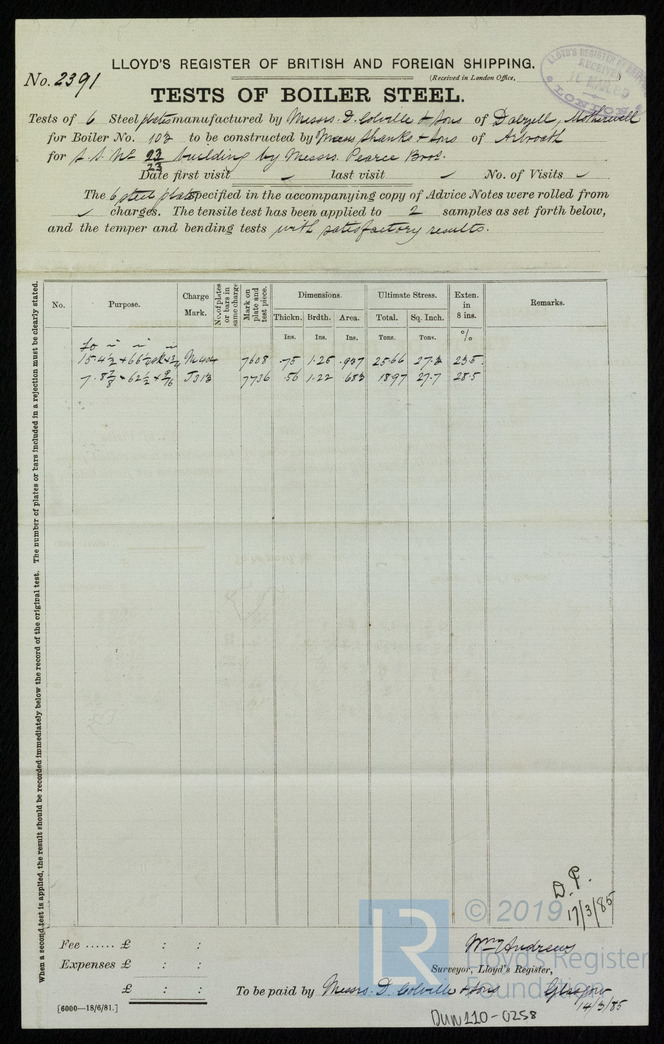 LLOYD'S REGISTER OF BRITISH AND FOREIGN SHIPPING.
No. 2391
(Received in London Office,
LLOYD'S REGISTER OF
RECEIVED
LONDON
TESTS OF BOILER STEEL.
Tests of 6 Steel plates manufactured by Messrs. D. Colville & Sons of Dalzell, Motherwell
for Boiler No. 102 to be constructed by Messrs Shanks & Sons of Arbroath
for S.S. No 23 building by Messrs. Pearce Bros.
23
Date first visit ✓ last visit ✓ No. of Visits ✓
The 6 steel plates specified in the accompanying copy of Advice Notes were rolled from
✓ charges. The tensile test has been applied to 2 samples as set forth below,
and the temper and bending tests with satisfactory results.
No. Purpose. Charge Mark. No. of plates or bars in same charge Mark on plate and test piece. Dimensions. Ultimate Stress. Exten. in 8 ins. Remarks.
Thickn. Brdth. Area. Total. Sq. Inch.
Ins. Ins. Ins. Tons. Tons. %
7608 .75 1.25 .937 25.66 27.3 23.5
7736 .56 1.22 .683 18.97 27.7 28.5
When a second test is applied, the result should be recorded immediately below the record of the original test. The number of plates or bars included in a rejection must be clearly stated.
D.P.
17/3/85
© 2019
Lloyd's Register
Foundation
LR
Fee ...... £ : :
Expenses £ : :
£ : :
Wm Andrews
Surveyor, Lloyd's Register,
To be paid by Messrs. D. Colville & Sons Glasgow
14/3/85
[6000—18/6/81.]
DUN110-0258